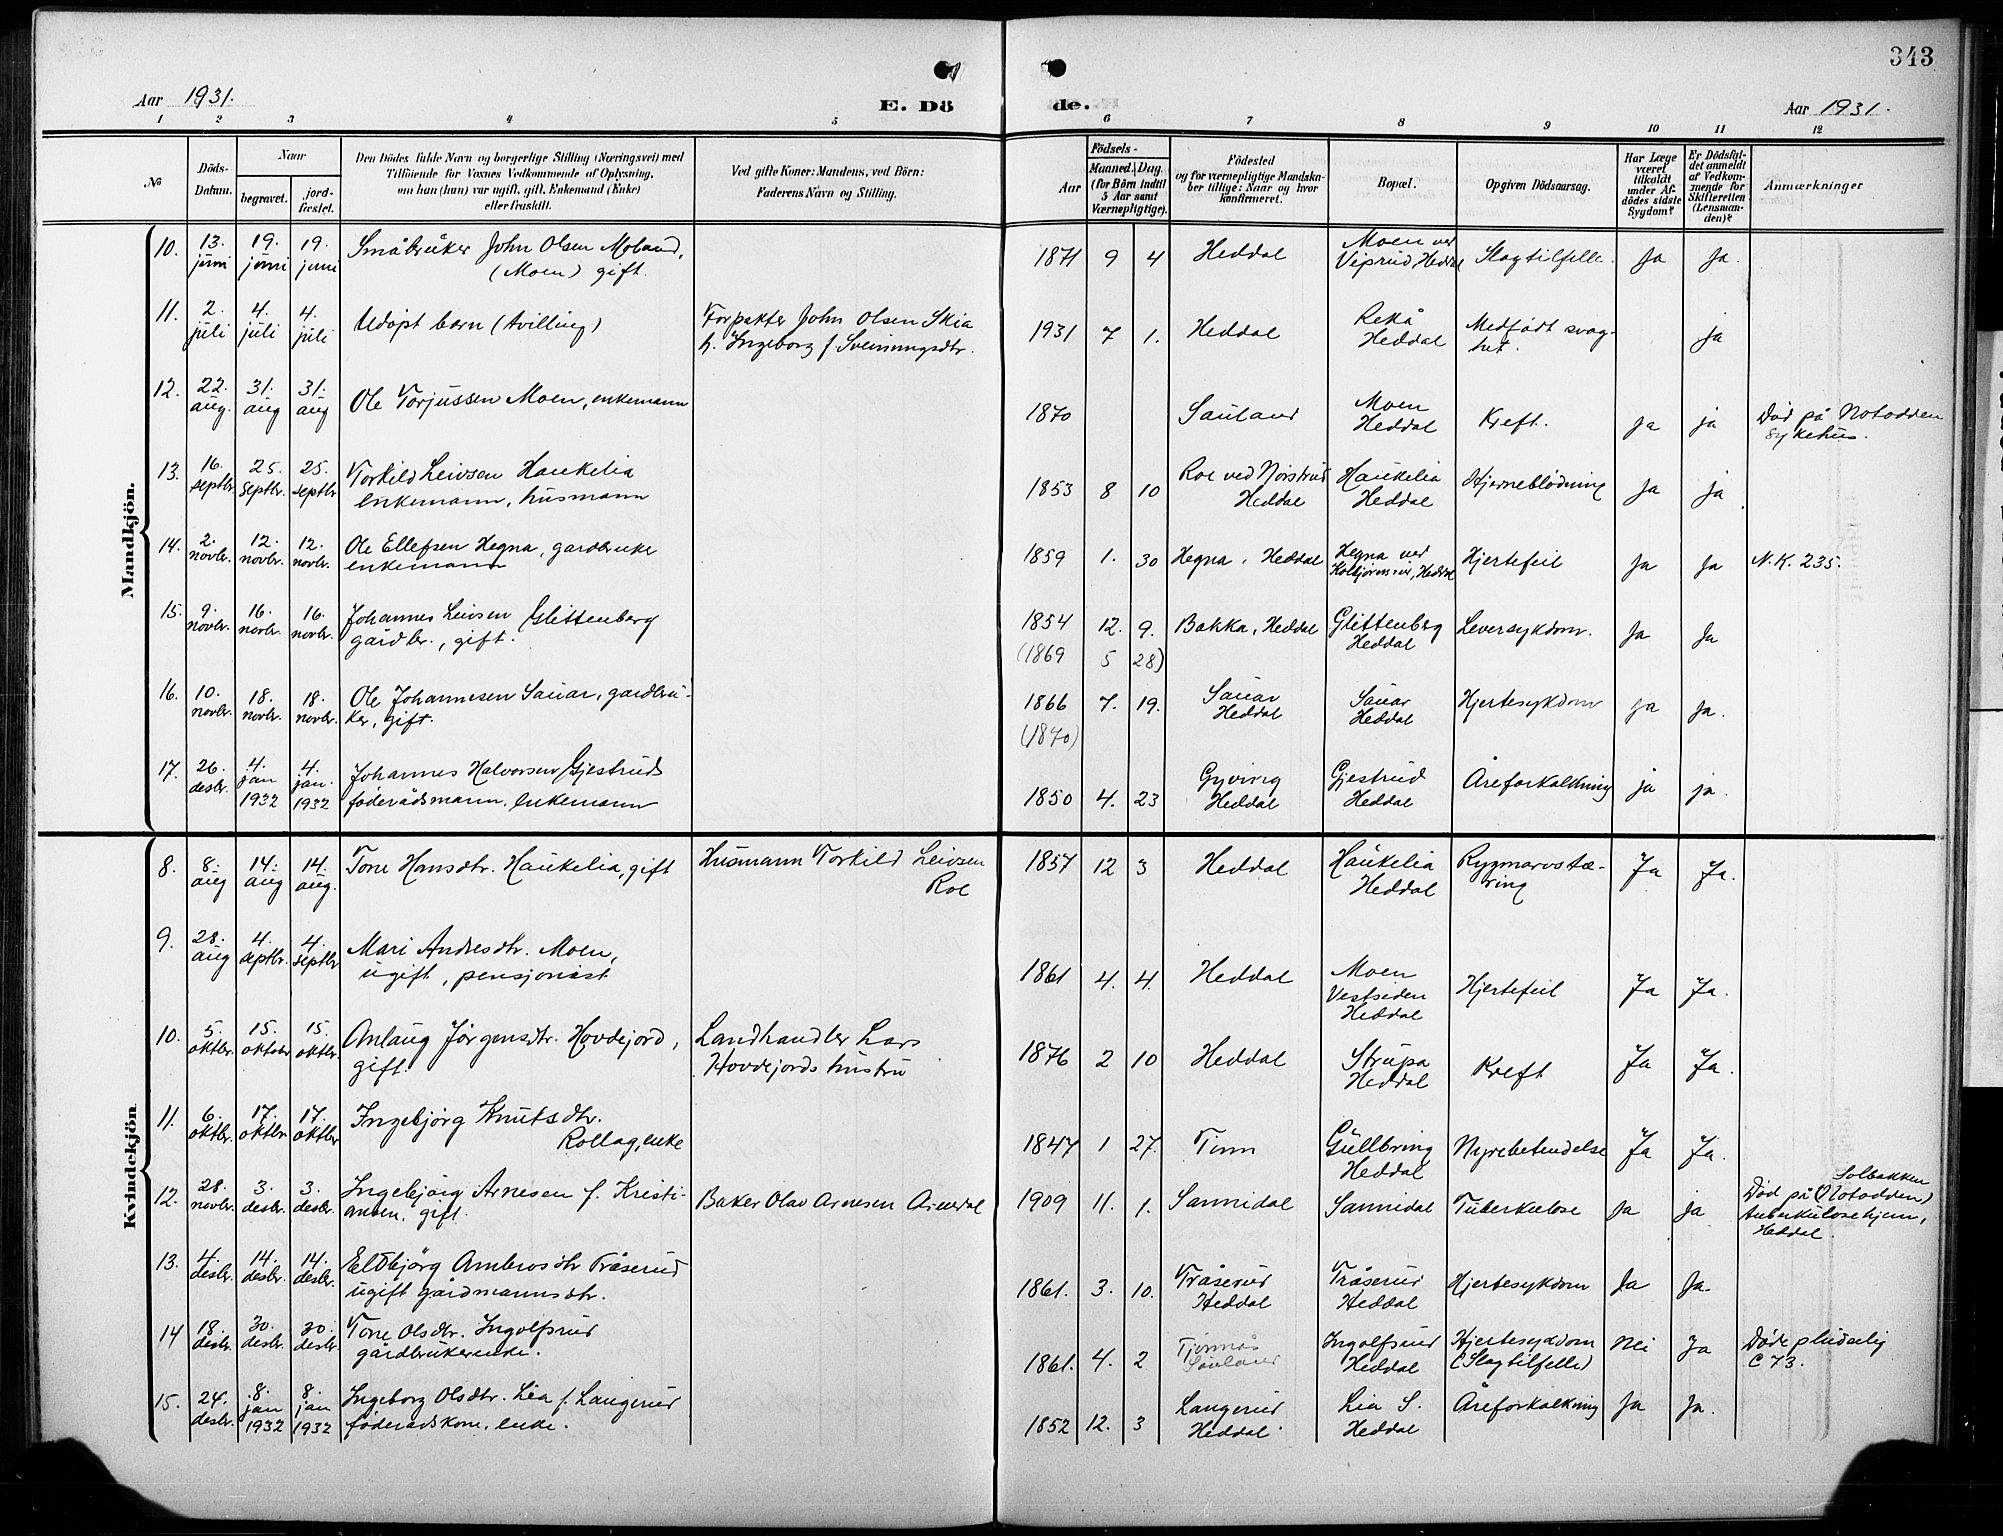 343
Aar 1931.
E. Dö
de.
Aar 1931.
1 2 3 4 5 6 7 8 9 10 11 12
No
Döds-
Datum.
Naar
begravet.
jord-
fæstet.
Den Dödes fulde Navn og borgerlige Stilling (Næringsvei) med
Tilföiende for Voxnes Vedkommende af Oplysning,
om han (hun) var ugift, gift, Enkemand (Enke)
eller fraskilt.
Ved gifte Koner: Mandens, ved Börn:
Faderens Navn og Stilling.
Födsels-
Aar
Maaned.
Dag.
(for Börn indtil
5 Aar samt
Værnepligtige).
Födested
og for værnepligtige Mandska-
ber tillige: Naar og hvor
konfirmeret.
Bopæl.
Opgiven Dödsaarsag.
Har Læge
været
tilkaldt
under Af-
dödes sidste
Sygdom?
Er Dödsfal-
det anmeldt
af Vedkom-
mende for
Skifteretten
(Lensman-
den)?
Anmærkninger
Mandkjön.
10. 13. juni 19. juni 19. juni Småbruker John Olsen Moland, (Moen) gift. 1871 9 4 Heddal Moen ved Viprud, Heddal Slagtilfelle. Ja Ja.
11. 2. juli 4. juli 4. juli Udøpt barn (tvilling) Forpakter John Olsen Skia h. Ingeborg f Sveinungsdtr. 1931 7 1. Heddal Rekå Heddal Medfødt svaghet. ja
12. 22. aug. 31. aug 31. aug Ole Torjussen Moen, enkemann 1870 Sauland Moen Heddal Kreft. ja ja Død på Notodden sykehus.
13. 16. septbr. 25. septbr. 25. septbr Torkild Leivsen Haukelia enkemann, husmann 1853 8 10 Roe ved Nørstrud Heddal Haukelia Heddal Hjerneblødning ja ja
14. 2. novbr. 12. novbr. 12. novbr. Ole Ellefsen Hegna, gardbruke enkemann 1859 1. 30 Hegna, Heddal Hegna ved Kolbjørnsrud, Heddal Hjertefeil Ja Ja N.K. 235.
15. 9. novbr. 16. novbr. 16. novbr. Johannes Leivsen Glittenberg gardbr., gift. 1854 12. 9. Bakka, Heddal Glittenberg Heddal Leversykdom. Ja Ja
(1869 5 28)
16. 10. novbr. 18. novbr. 18. novbr. Ole Johannesen Sauar, gardbruker, gift. 1866 7. 19. Sauar Heddal Sauar Heddal Hjertesykdom ja ja.
(1870)
17. 26. desbr. 4. jan 1932 4. jan. 1932 Johannes Halvorsen Gjestrud føderådsmann, enkemann 1850 4. 23 Gyving Heddal Gjestrud Heddal Åreforkalkning ja ja.
Kvindekjön
8. 8. aug 14. aug 14. aug. Tone Hansdtr. Haukelia, gift Husmann Torkild Leivsen Roe 1857 12 3 Heddal Haukelia Heddal Rygmarvstæring Ja Ja.
9. 28. aug 4. septbr. 4. septbr Mari Andresdtr. Moen, ugift, pensjonist 1861 4. 4. Heddal Moen Vestsiden Heddal Hjertefeil Ja Ja.
10. 5. oktbr. 15. oktober 15. oktbr. Anlaug Jørgensdtr. Hovdejord, gift. Landhandler Lars Hovdejords hustru 1876 2 10 Heddal Strupa Heddal Kreft Ja Ja.
11. 6. oktbr. 17. oktbr 17. oktbr Ingebjørg Knutsdtr. Rollag, enke 1847 1 27. Tinn Gullbring Heddal Nyrebetendelse Ja Ja.
12. 28. novbr. 3. desbr. 3. desbr. Ingebjørg Arnesen f. Kristiansen, gift. Baker Olav Arnesen Årnedal 1909 11. 1. Sannidal Sannidal Tuberkulose Ja ja Solbakken Død på (Notodden) tuberkulosehjem, Heddal.
13. 4. desbr. 14. desbr. 14. desbr. Eldbjørg Ambrosdtr Tråserud ugift gårdmannsdtr. 1861. 3. 10. Tråserud Heddal Tråserud Heddal Hjertesykdom Ja Ja.
14 18. desbr. 30. desbr. 30. desbr. Tone Olsdtr. Ingolfsrud gårdbrukerenke. 1861. 4. 2 Tjønnås Sauland Ingolfsrud Heddal Hjertesykdom (Slagtilfelle) Nei Ja Døde pludselig C 73.
15. 24. desbr. 8. jan 1932 8. jan 1932 Ingeborg Olsdtr. Lia f. Langerud føderådskone, enke. 1852 12. 3 Langerud Heddal Lia S. Heddal Åreforkalkning Ja Ja.